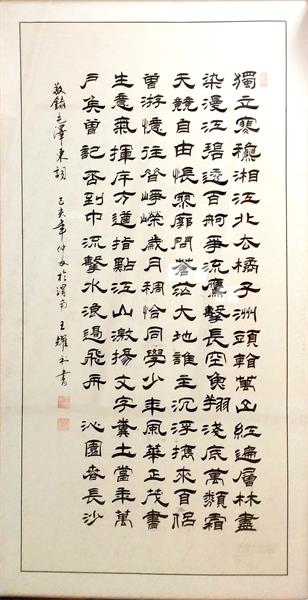 獨立寒穐湘江北去橘子洲頭看萬山紅遍層林盡
染漫江碧透百舸爭流鷹擊長空魚翔淺底萬類霜
天競自由悵寥廓問蒼茫大地誰主沉浮攜來百侶
曾游憶往昔崢嶸歲月稠恰同學少年風華正茂書
生意氣揮斥方遒指點江山激揚文字糞土當年萬
戶矦曾記否到中流擊水浪遏飛舟 沁園春長沙
敬錄毛澤東詞 己亥年仲 於渭南 王耀 書